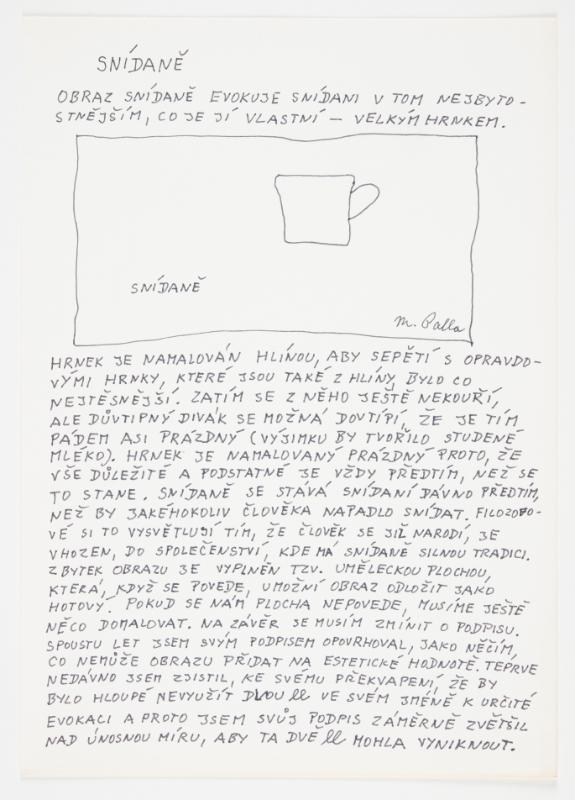 SNÍDANĚ
OBRAZ SNÍDANĚ EVOKUJE SNÍDANI V TOM NEJBYTO-
STNĚJŠÍM, CO JE JÍ VLASTNÍ – VELKÝM HRNKEM.
SNÍDANĚ
M. Palla
HRNEK JE NAMALOVÁN HLÍNOU, ABY SEPĚTÍ S OPRAVDO-
VÝMI HRNKY, KTERÉ JSOU TAKÉ Z HLÍNY, BYLO CO
NEJTĚSNĚJŠÍ. ZATÍM SE Z NĚHO JEŠTĚ NEKOUŘÍ,
ALE DŮVTIPNÝ DIVÁK SE MOŽNÁ DOVTÍPÍ, ŽE JE TÍM
PÁDEM ASI PRÁZDNÝ (VÝJIMKU BY TVOŘILO STUDENÉ
MLÉKO). HRNEK JE NAMALOVANÝ PRÁZDNÝ PROTO, ŽE
VŠE DŮLEŽITÉ A PODSTATNÉ JE VŽDY PŘEDTÍM, NEŽ SE
TO STANE. SNÍDANĚ SE STÁVÁ SNÍDANÍ DÁVNO PŘEDTÍM,
NEŽ BY JAKÉHOKOLIV ČLOVĚKA NAPADLO SNÍDAT. FILOZOFO-
VÉ SI TO VYSVĚTLUJÍ TÍM, ŽE ČLOVĚK SE JIŽ NARODÍ, JE
VHOZEN, DO SPOLEČENSTVÍ, KDE MÁ SNÍDANĚ SILNOU TRADICI.
ZBYTEK OBRAZU JE VYPLNĚN TZV. UMĚLECKOU PLOCHOU,
KTERÁ, KDYŽ SE POVEDE, UMOŽNÍ OBRAZ ODLOŽIT JAKO
HOTOVÝ. POKUD SE NÁM PLOCHA NEPOVEDE, MUSÍME JEŠTĚ
NĚCO DOMALOVAT. NA ZÁVĚR SE MUSÍM ZMÍNIT O PODPISU.
SPOUSTU LET JSEM SVÝM PODPISEM OPOVRHOVAL, JAKO NĚČÍM,
CO NEMŮŽE OBRAZU PŘIDAT NA ESTETICKÉ HODNOTĚ. TEPRVE
NEDÁVNO JSEM ZJISTIL, KE SVÉMU PŘEKVAPENÍ, ŽE BY
BYLO HLOUPÉ NEVYUŽÍT DVOU ll VE SVÉM JMÉNĚ K URČITÉ
EVOKACI A PROTO JSEM SVŮJ PODPIS ZÁMĚRNĚ ZVĚTŠIL
NAD ÚNOSNOU MÍRU, ABY TA DVĚ ll MOHLA VYNIKNOUT.